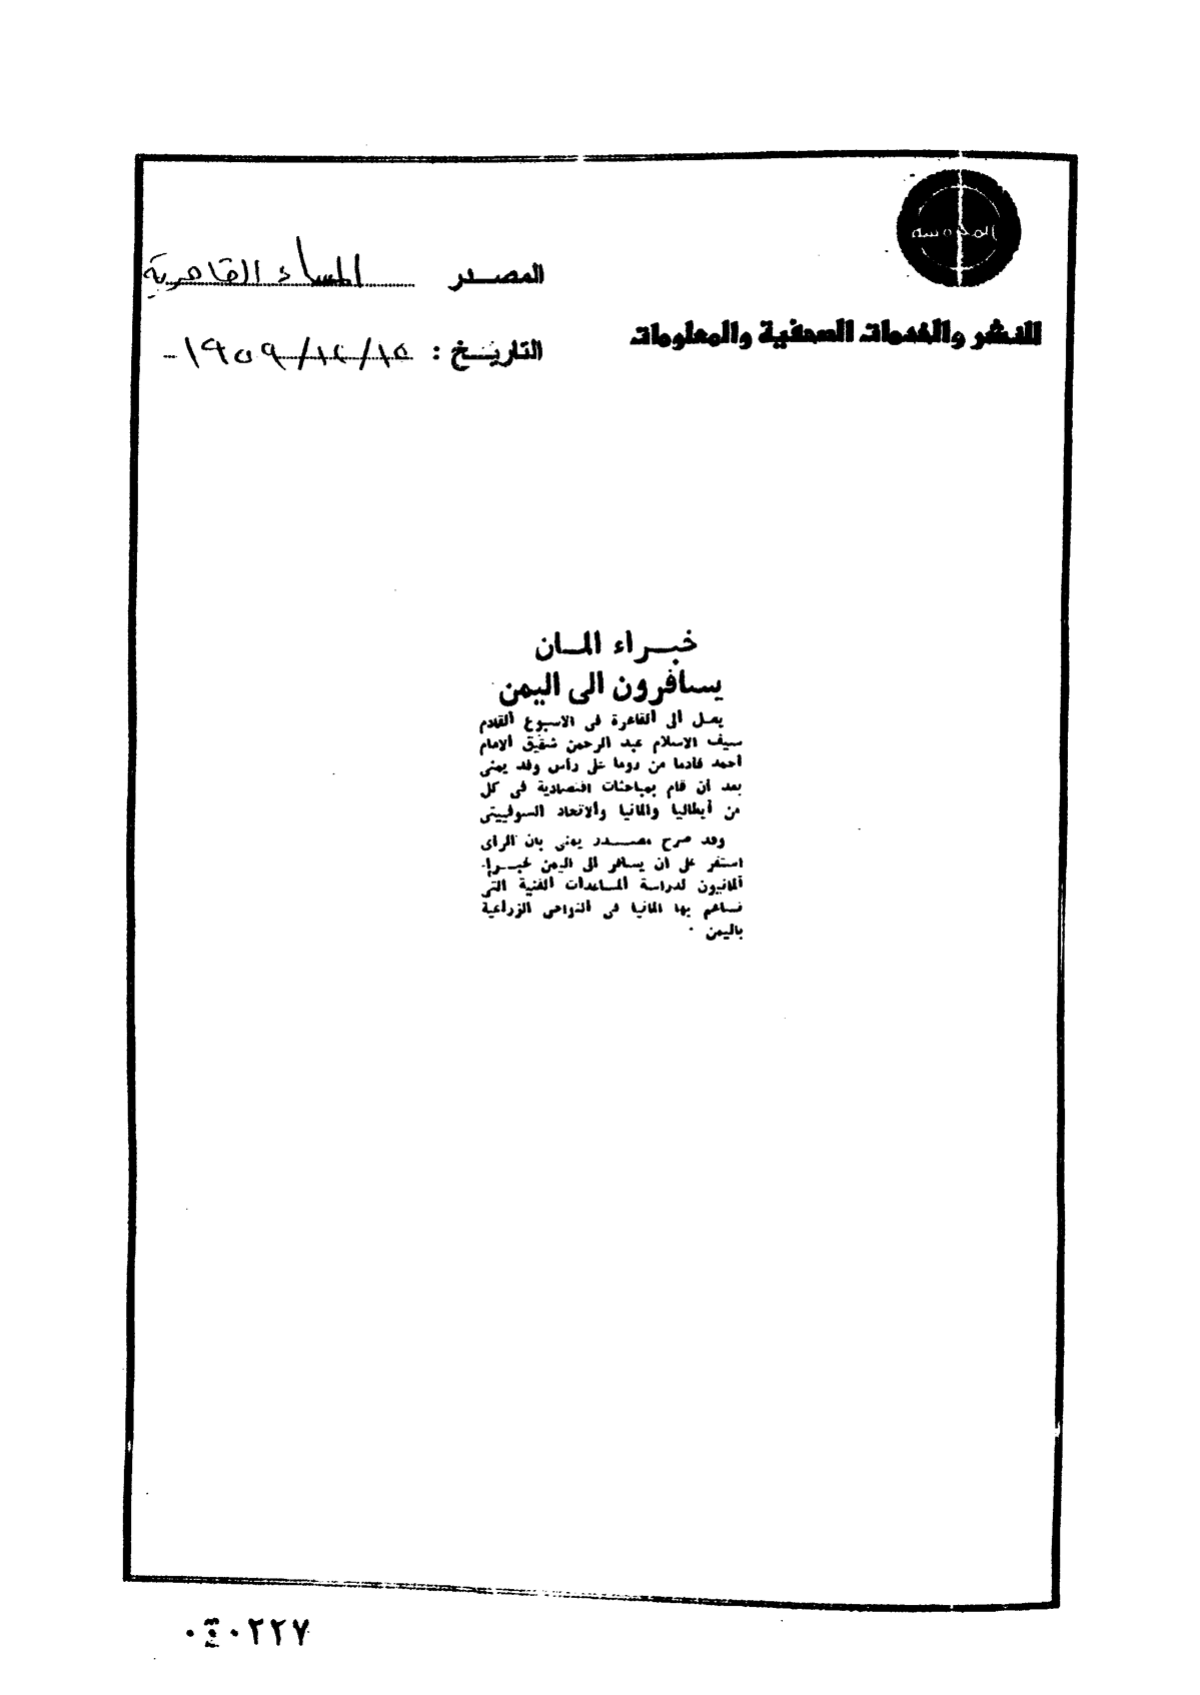 المحروسة
للنشر والخدمات الصحفية والمعلومات
المصدر المساء القاهرية
التاريخ : ١٩٥٩/١٢/١٥
خبراء المان
يسافرون الى اليمن
يصل الى القاهرة فى الاسبوع القادم
سيف الاسلام عبد الرحمن شقيق الامام
أحمد قادما من روما على رأس وفد يمنى
بعد أن قام بمباحثات اقتصادية فى كل
من أيطاليا والمانيا والاتحاد السوفييتى
وقد صرح مصدر يمنى بان الراى
استقر على ان يسافر الى اليمن خبراء
ألمانيون لدراسة المساعدات الفنية التى
تساهم بها المانيا فى النواحى الزراعية
باليمن .